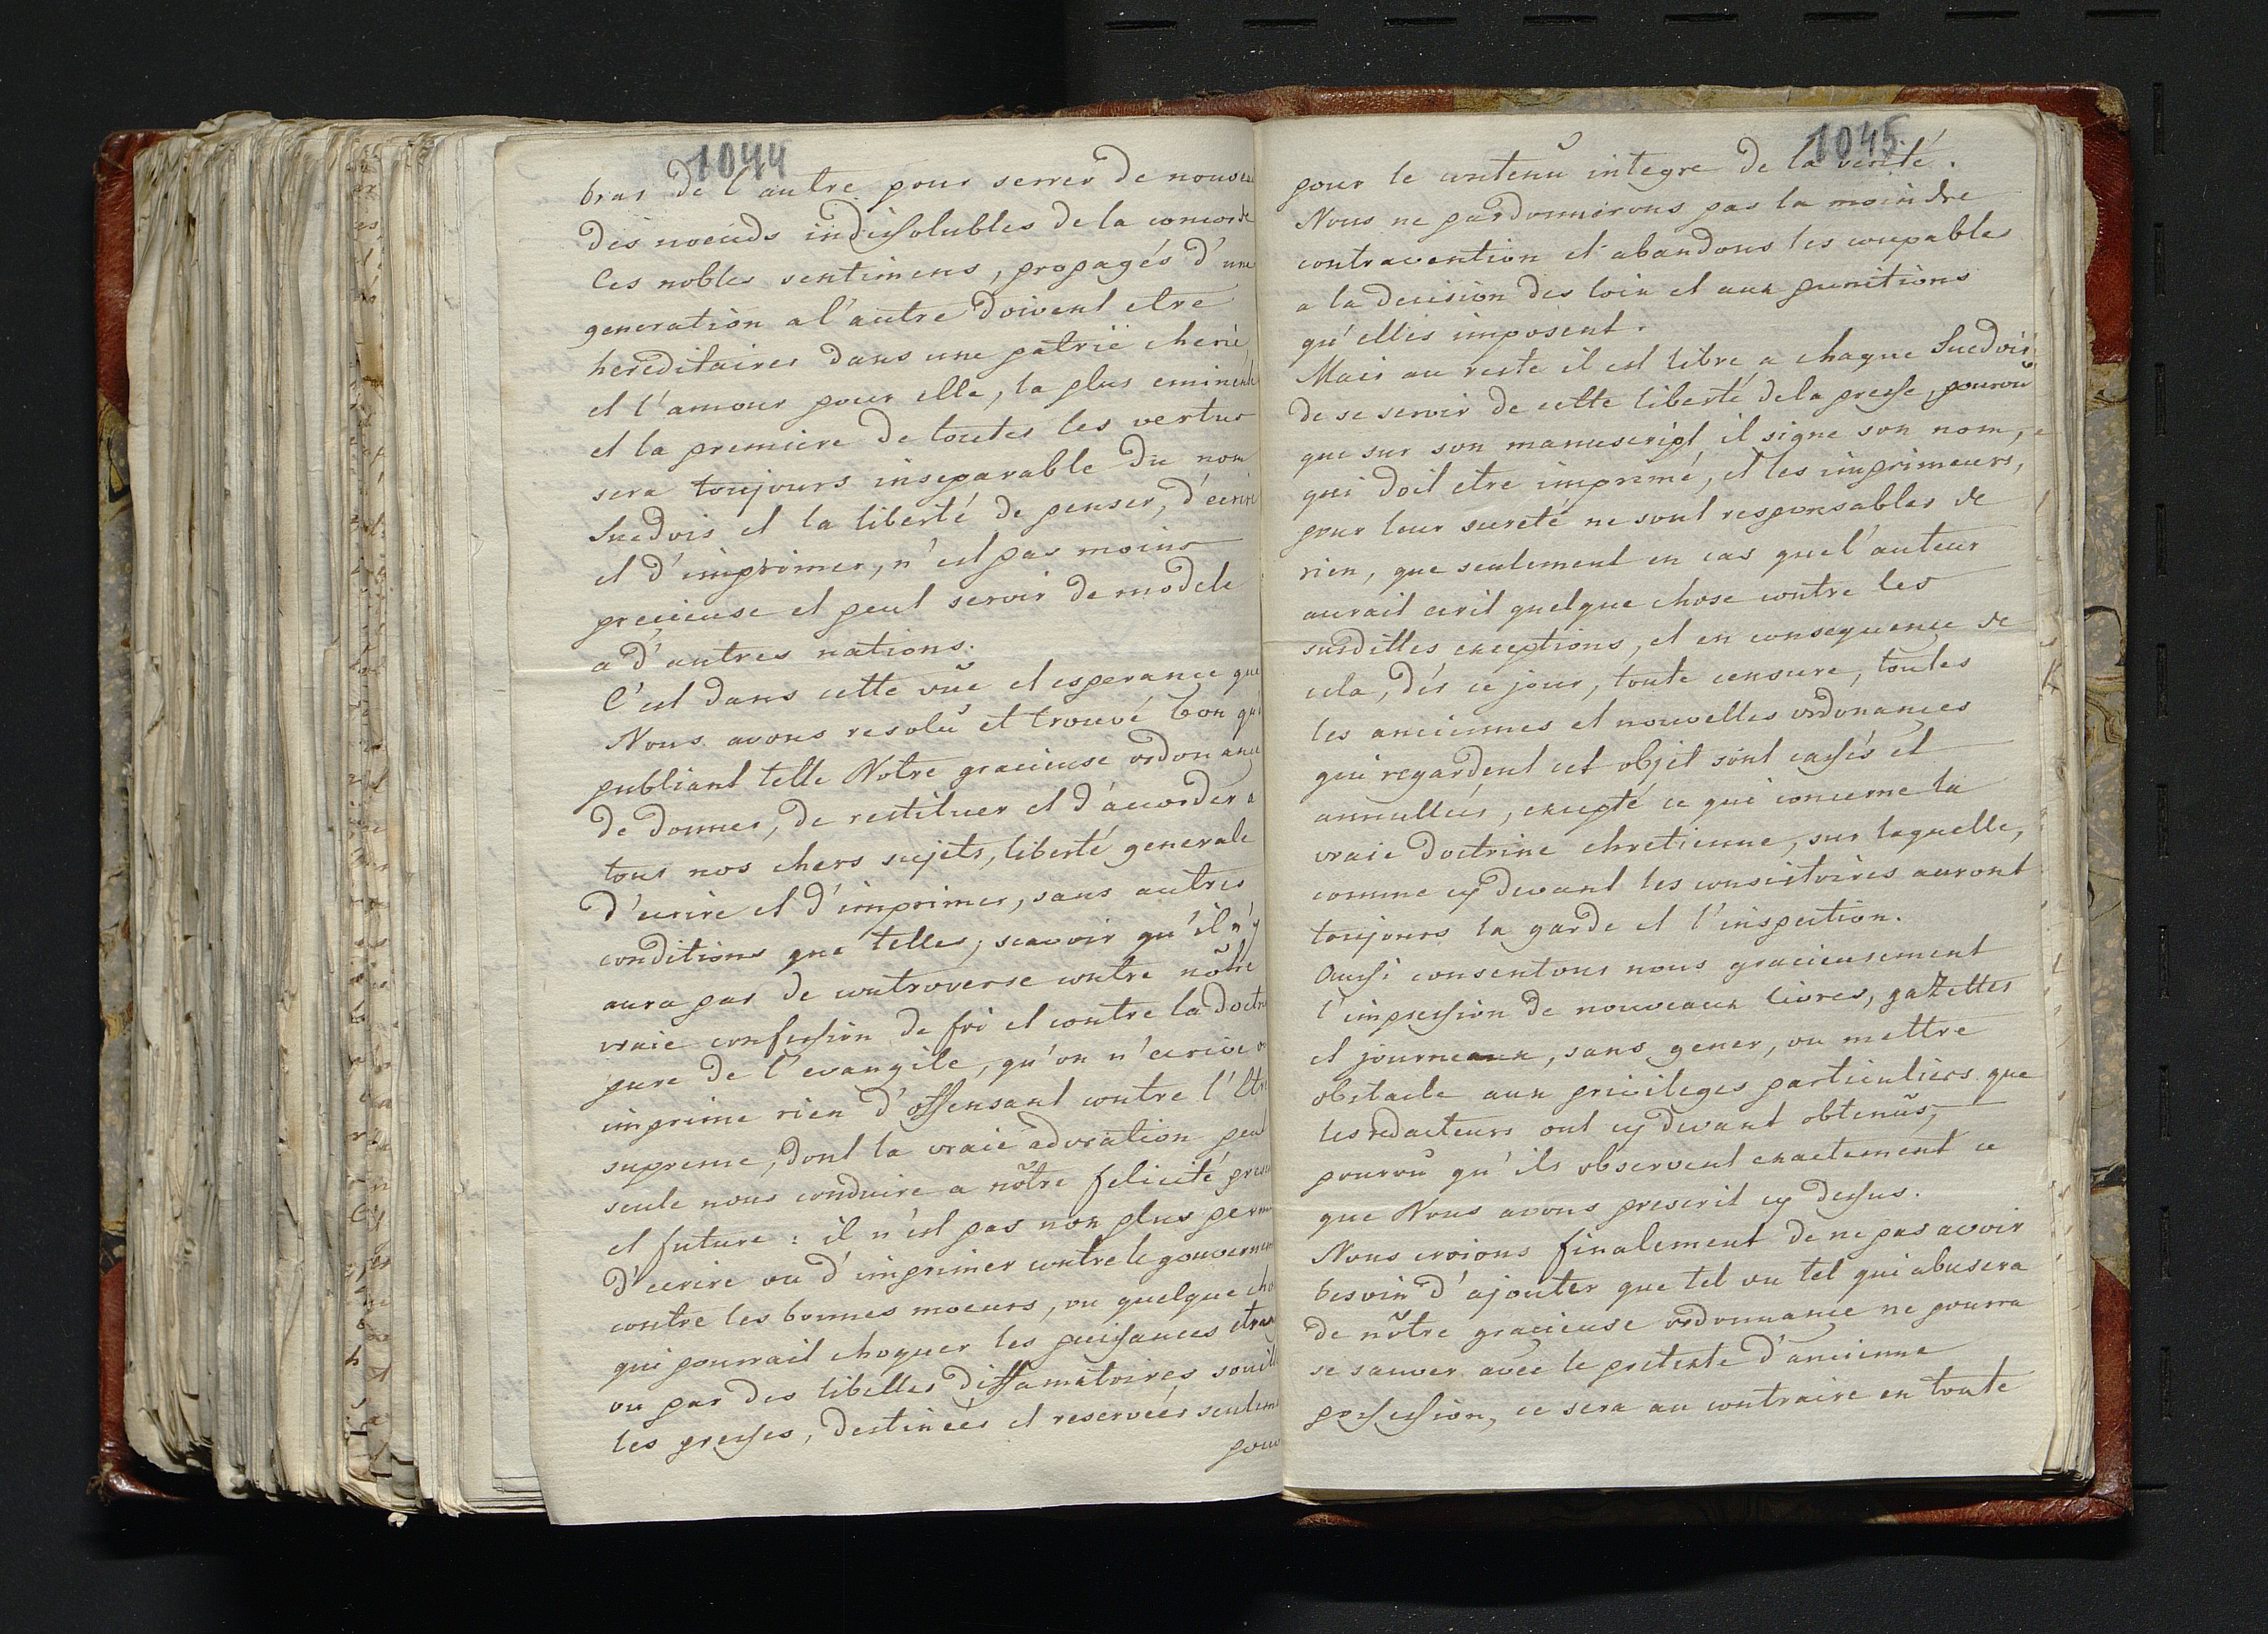 1044
bras de l'autre pour serrer de nouveau
des noeuds indissolubles de la concorde
Ces nobles sentimens, propagés d'une
generation a l'autre doivent etre
hereditaires dans une patrië cherie,
et l'amour pour elle, la plus eminente
et la premiere de toutes les vertus
sera toujours inseparable du nom
Suedois et la liberté de penser, d'ecrire
et d'imprimer, n'est pas moins
precieuse et peut servir de modele
a d'autres nations.
C'est dans cette vuë et esperance que
Nous avons resolû et trouvé bon qu'
publiant telle Notre gracieuse ordonance
de donner, de restituer et d'accorder a
tous nos chers sujets, liberté generale
d'ecrire et d'imprimer, sans autres
conditions que telles, scavoir qu'il n'y
aura pas de controverse contre nôtre
vraie confession de foi et contre la doctri
pure de l'evangile, qu'on n'ecrive
imprime rien d'offensant contre l'Etre
supreme, dont la vraie adoration peut
seule nous conduire a nôtre felicité prese
et future: il n'est pas non plus perm
d'ecrire ou d'imprimer contre le gouvernem
contre les bonnes moeurs, ou quelque cho
qui pourrait choquer les puissances etran
ou par des libelles diffamatoires souill
les presses, destineés et reserveés seulem
pour
1045
pour le contenû integre de la verité.
Nous ne pardonnerons pas la moindre
contravention et abandons les coupables
a la decision des loix et aux punitions
qu'elles imposent.
Mais au reste il est libre a chaque Suedois
de se servir de cette liberté de la presse, pourvû
que sur son manuscript, il signe son nom,
qui doit etre imprimé, et les imprimeurs,
pour leur sureté ne sont responsables de
rien, que seulement en cas que l'auteur
aurait ecrit quelque chose contre les
susdittes exceptions, et en consequence de
cela, dès ce jour, toute censure, toutes
les anciennes et nouvelles ordonances
qui regardent cet objet sont cassés et
annulleés, excepté ce qui concerne la
vraie doctrine chretienne, sur laquelle,
comme cy devant les consistoires auront
toujours la garde et l'inspection.
Aussi consentons nous gracieusement
l'impression de nouveaux livres, gazettes
et journeaux, sans gener, ou mettre
obstacle aux privileges particuliers que
les redacteurs ont cy devant obtenûs,
pourvû qu'ils observent exactement ce
que Nous avons prescrit cy dessus.
Nous croions finalement de ne pas avoir
besoin d'ajouter que tel ou tel qui abusera
de nôtre gracieuse ordonnance ne pourra
se sauver avec le pretexte d'ancienne
possession, ce sera au contraire en toute